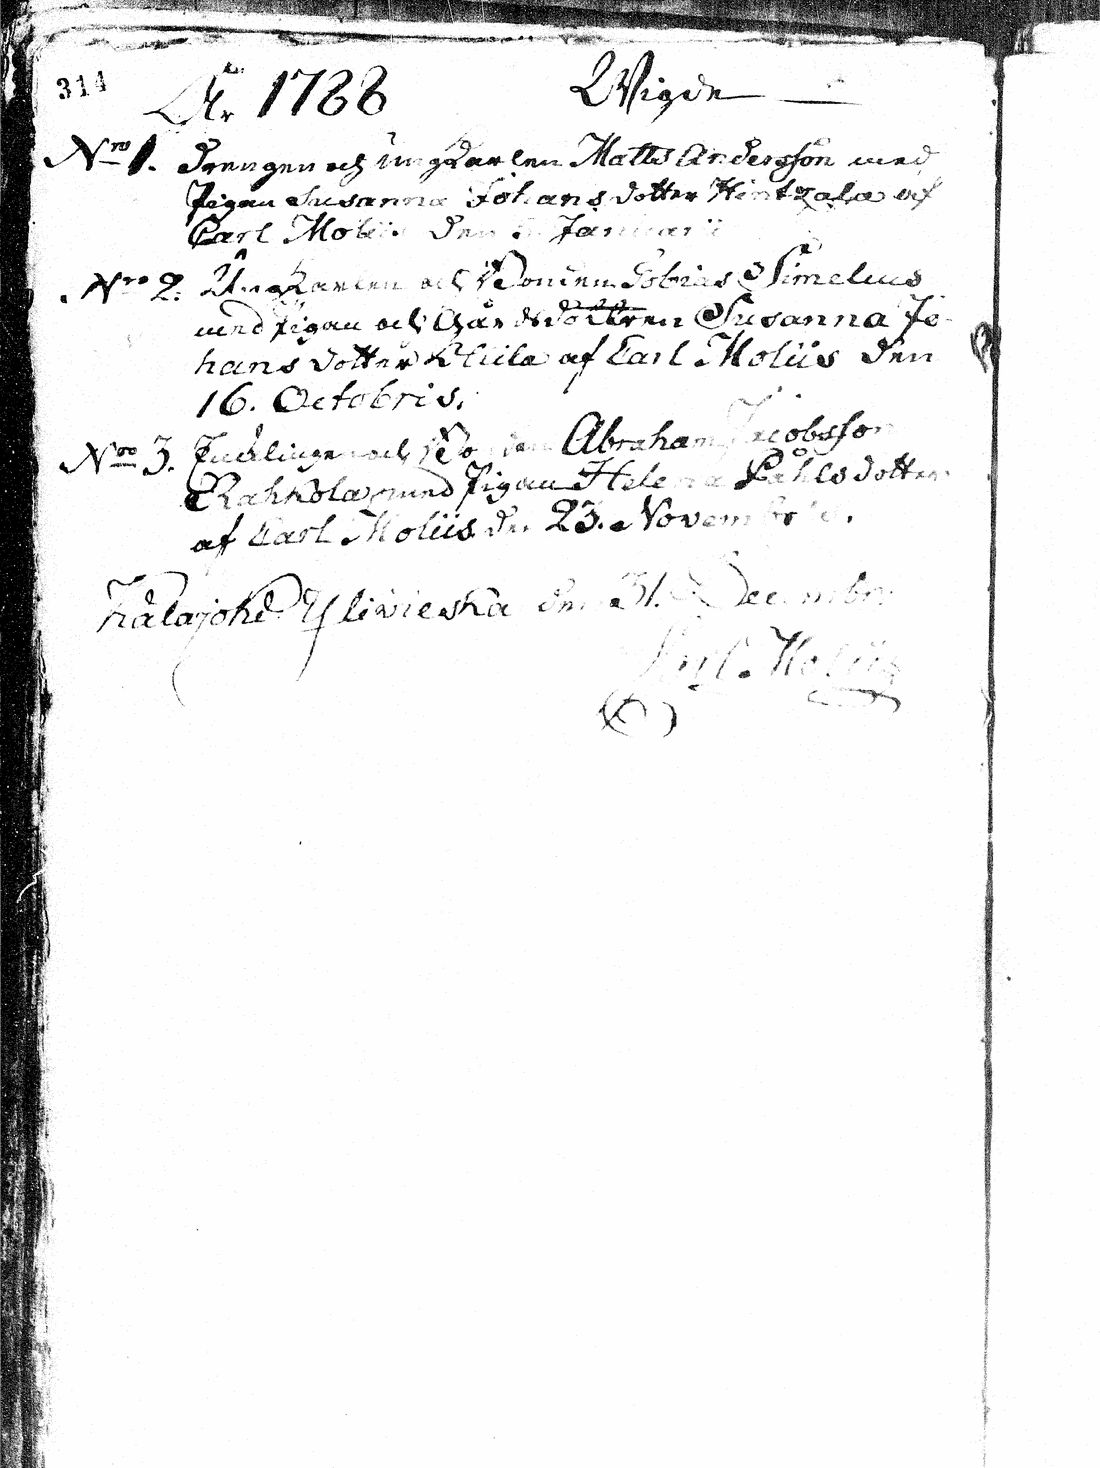 314
År 1788 Wigde
Nro 1. Drengen och ungkarlen Matts Andersson med
Pigan Susanna Johans dotter Hintzala af
Carl Moliis den Januarii
Nro 2. Ungkarlen och Bonden Tobias Simelius
med Pigan och Gårdsdottren Susanna Jo-
hans dotter af Carl Moliis den
16. Octobris.
Nro 3. Enklingen och Bonden Abraham Jacobsson
Rahkola med Pigan Helena Påhls dotter
af Carl Moliis den 23. Novembris.
Kalajoki Ylivieska den 31. December
Carl Moliis